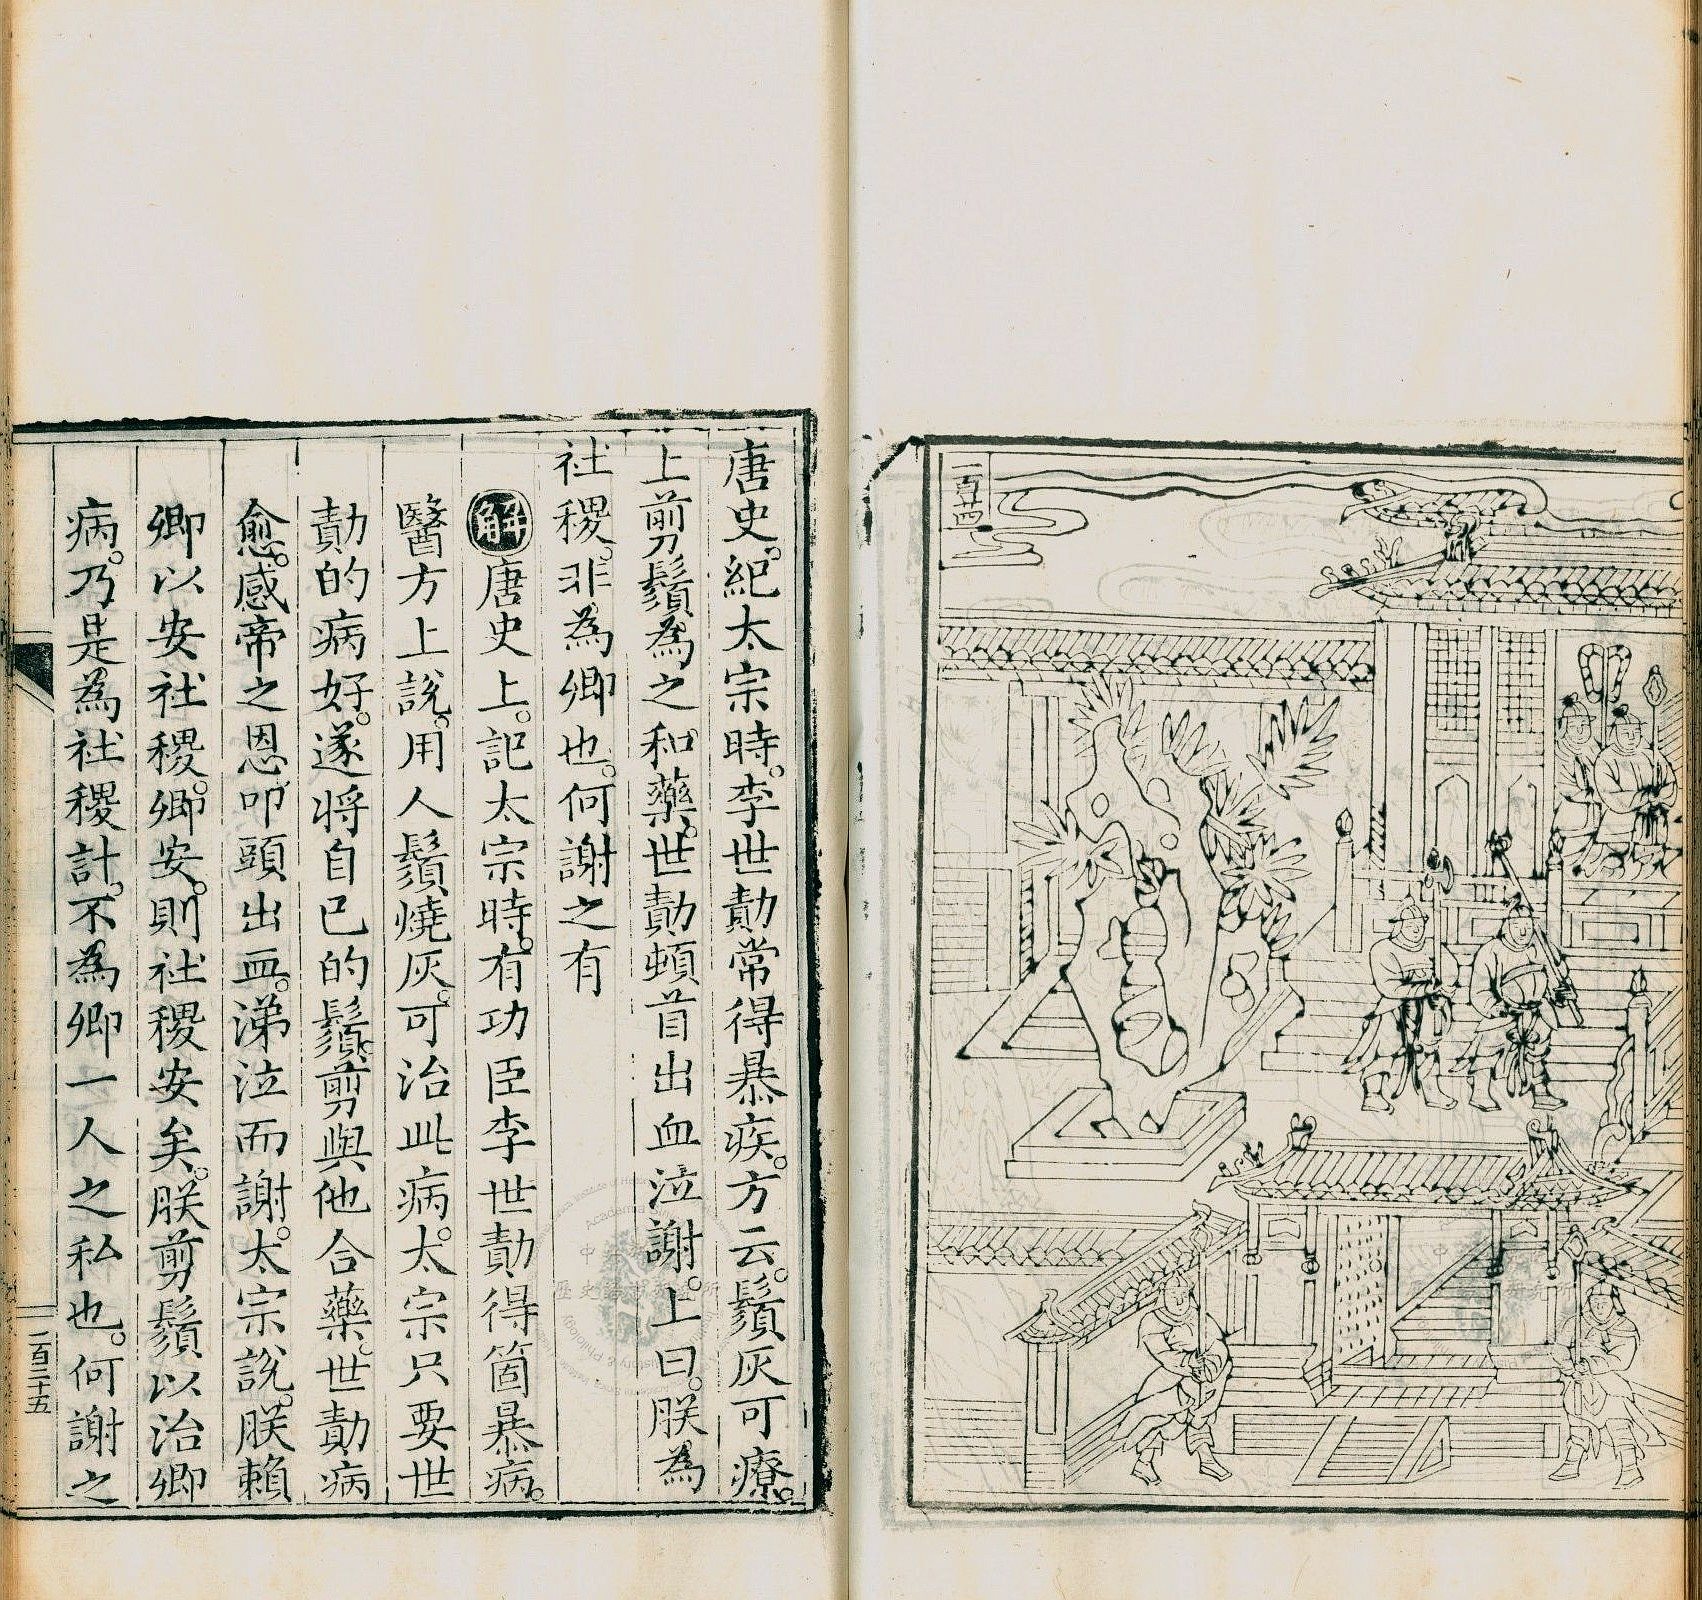 一百廿四
唐史。紀太宗時。李世勣常得暴疾。方云。鬚灰可療。
上剪鬚為之和藥。世勣頓首出血泣謝。上曰。朕為
社稷。非為卿也。何謝之有
解唐史上。記太宗時。有功臣李世勣得箇暴病。
醫方上說。用人鬚燒灰。可治此病。太宗只要世
勣的病好。遂將自己的鬚。剪與他合藥。世勣病
愈。感帝之恩。叩頭出血。涕泣而謝。太宗說。朕賴
卿以安社稷。卿安。則社稷安矣。朕剪鬚以治卿
病。乃是為社稷計。不為卿一人之私也。何謝之
一百二十五